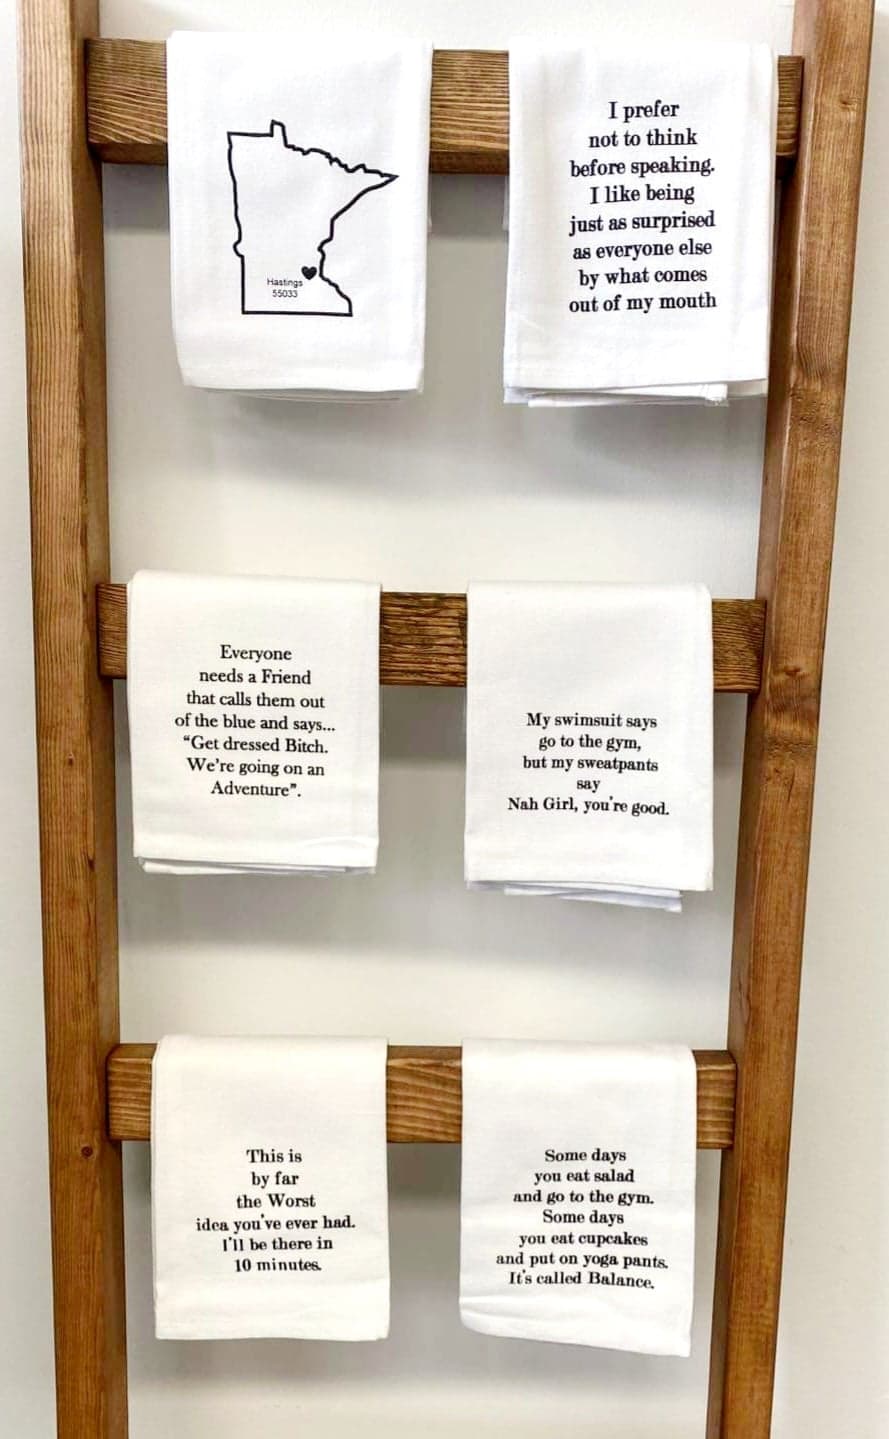 Hastings
55033
I prefer
not to think
before speaking.
I like being
just as surprised
as everyone else
by what comes
out of my mouth
Everyone
needs a Friend
that calls them out
of the blue and says...
“Get dressed Bitch.
We're going on an
Adventure”.
My swimsuit says
go to the gym,
but my sweatpants
say
Nah Girl, you're good.
This is
by far
the Worst
idea you've ever had.
I'll be there in
10 minutes.
Some days
you eat salad
and go to the gym.
Some days
you eat cupcakes
and put on yoga pants.
It's called Balance.